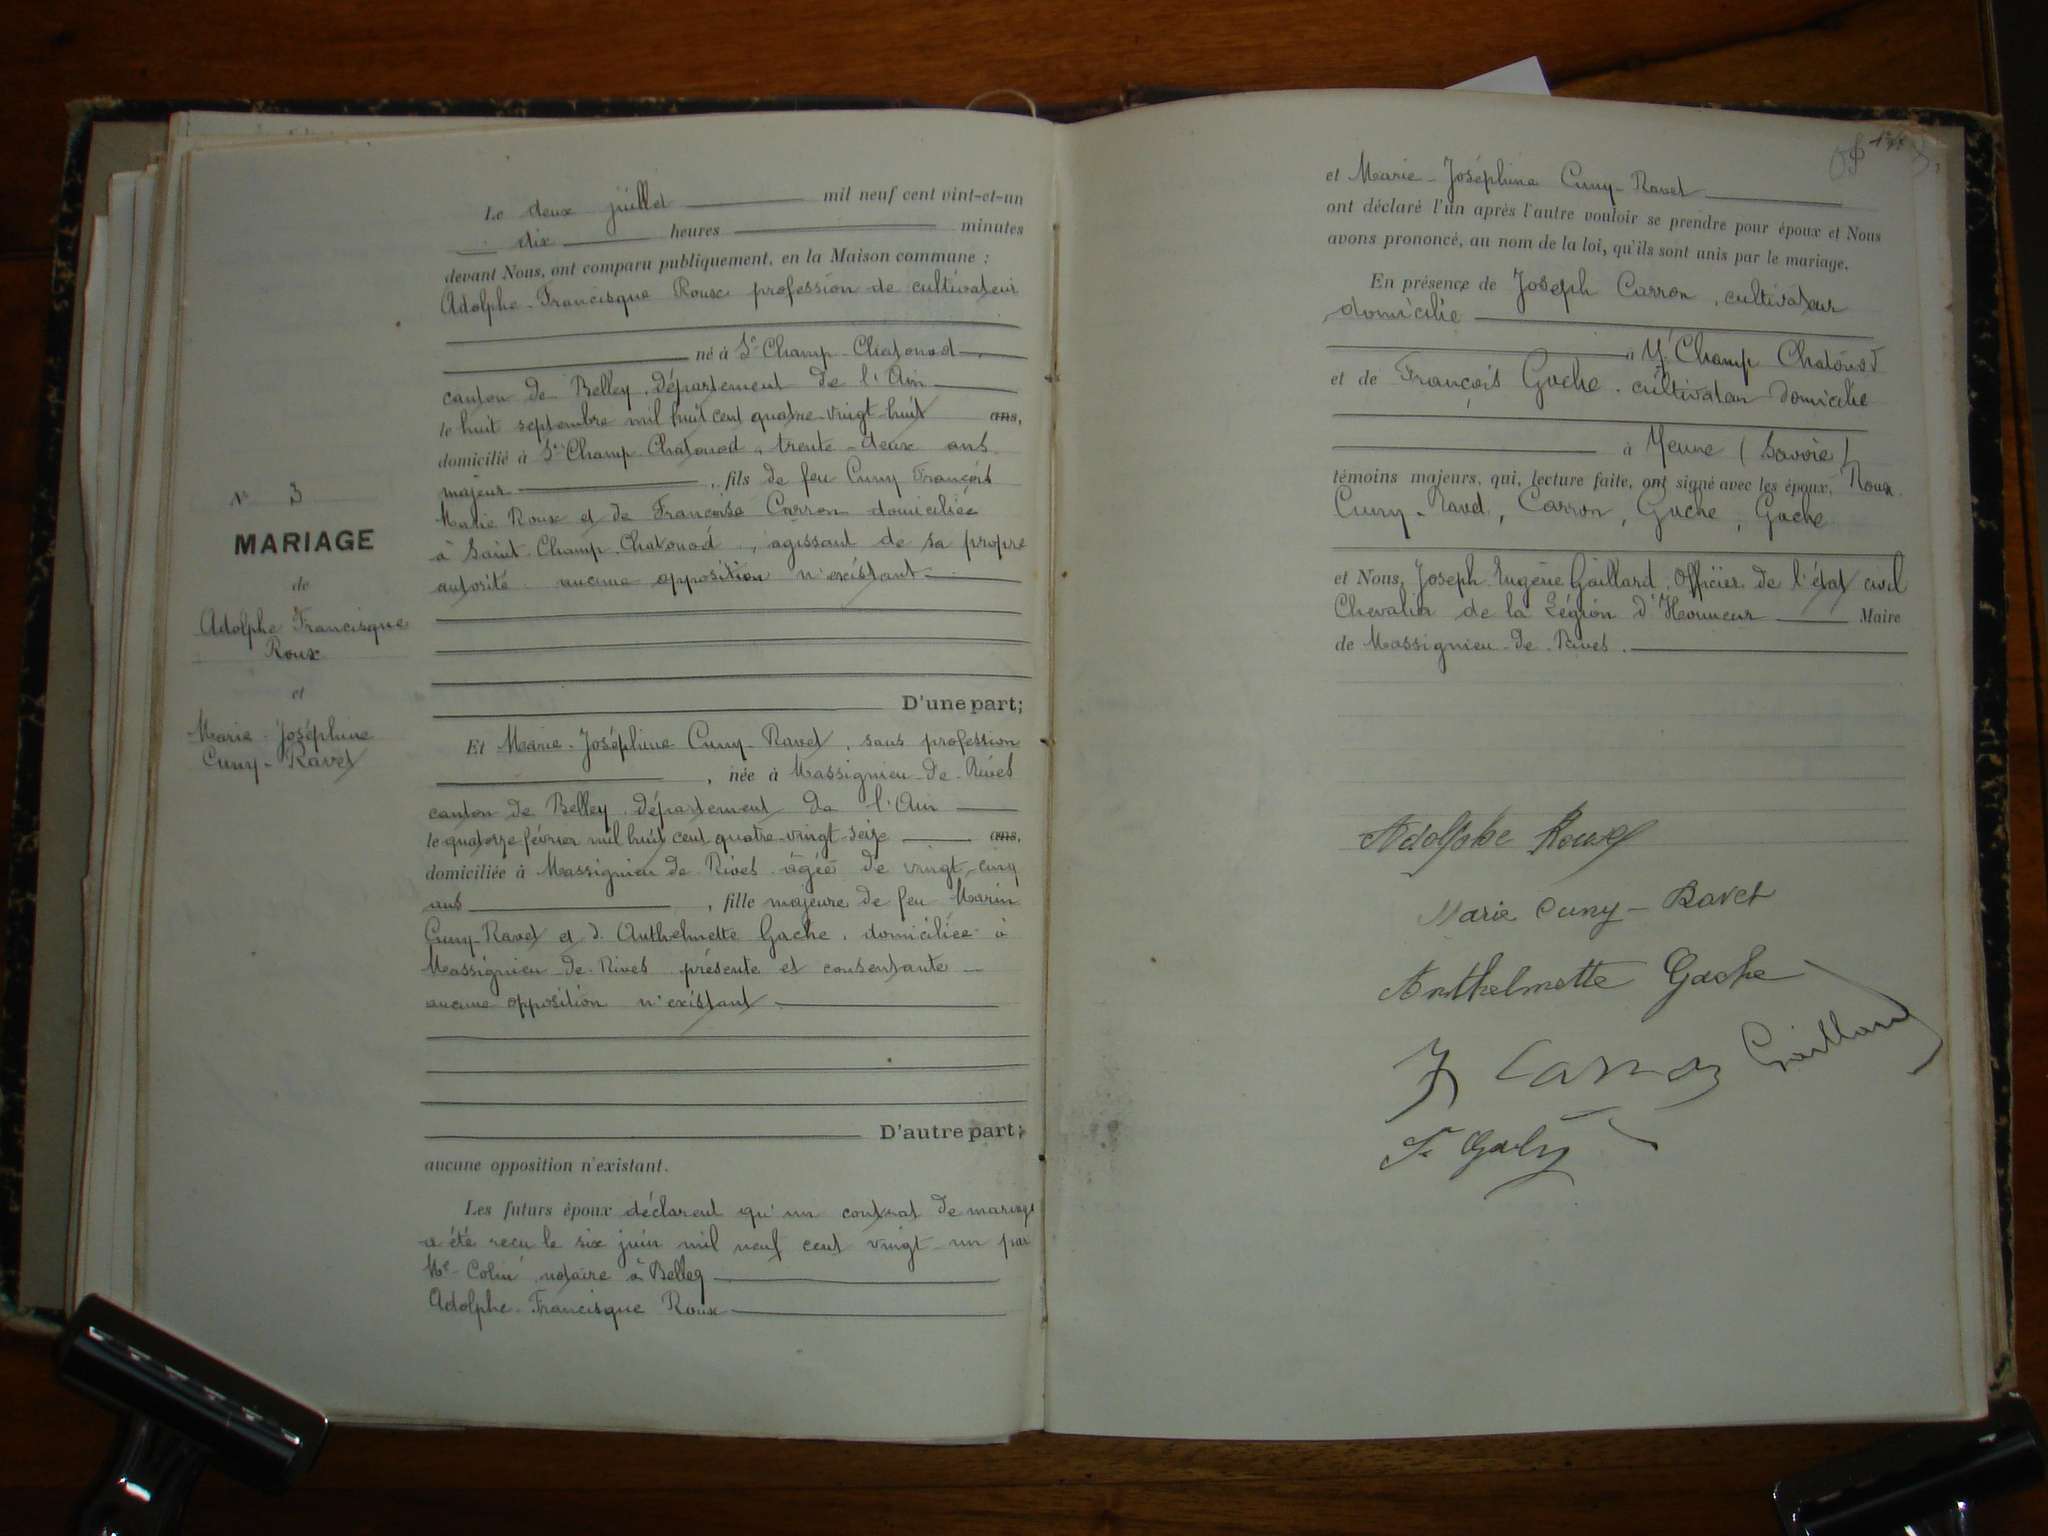 N° 3
MARIAGE
de
Adolphe Francisque
Roux
et
Marie-Joséphine
Cuny-Ravet
Le deux juillet mil neuf cent vint-et-un
dix heures minutes
devant Nous, ont comparu publiquement, en la Maison commune :
Adolphe-Francisque Roux profession de cultivateur
né à St Champ-Chatonod
canton de Belley, département de l'Ain
le huit septembre mil huit cent quatre-vingt-huit ans,
domicilié à St Champ Chatonod, trente-deux ans
majeur, fils de feu Cuny François
Marie Roux et de Françoise Carron domiciliée
à Saint-Champ-Chatonod, agissant de sa propre
autorité aucune opposition n'existant
D'une part;
Et Marie-Joséphine Cuny-Ravet, sans profession
, née à Massignieu-de-Rives
canton de Belley, département de l'Ain
le quatorze février mil huit cent quatre-vingt-seize ans,
domiciliée à Massignieu de Rives âgée de vingt-cinq
ans, fille majeure de feu Marin
Cuny-Ravet et d. Anthelmette Gache, domiciliée à
Massignieu-de-Rives présente et consentante
aucune opposition n'existant
D'autre part;
aucune opposition n'existant.
Les futurs époux déclarent qu'un contrat de mariage
a été reçu le six juin mil neuf cent vingt-un par
Me Colin notaire à Belley
Adolphe-Francisque Roux
et Marie-Joséphine Cuny-Ravet
ont déclaré l'un après l'autre vouloir se prendre pour époux et Nous
avons prononcé, au nom de la loi, qu'ils sont unis par le mariage.
En présence de Joseph Carron, cultivateur
domicilié
à St Champ Chatonod
et de François Gache, cultivateur domicilié
à Yenne (Savoie)
témoins majeurs, qui, lecture faite, ont signé avec les époux, Roux
Cuny-Ravet, Carron, Gache, Gache
et Nous, Joseph Eugène Gaillard, Officier de l'état civil
Chevalier de la Légion d'Honneur Maire
de Massignieu-de-Rives.
Adolphe Roux
Marie Cuny-Ravet
Anthelmette Gache
J Carron Gaillard
F. Gache